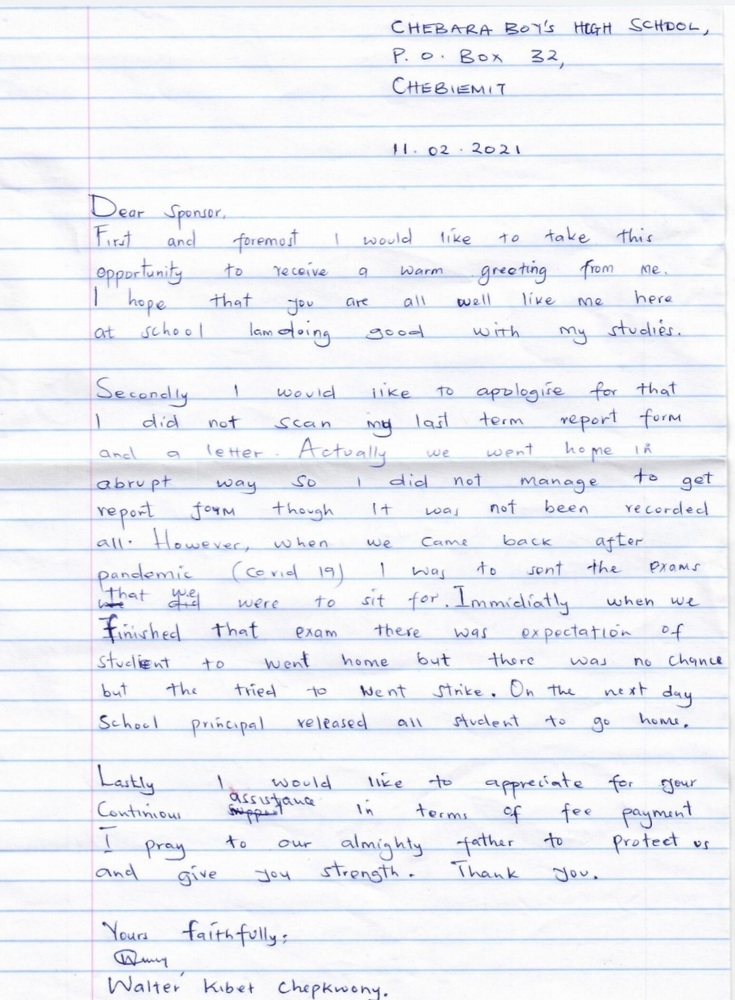 CHEBARA BOY'S HIGH SCHOOL,
P. O. Box 32,
CHEBIEMIT
11. 02 . 2021
Dear Sponsor,
First and foremost I would like to take this
opportunity to receive a warm greeting from me.
I hope that you are all well like me here
at school Iamdoing good with my studies.
Secondly I would like to apologise for that
I did not scan my last term report form
and a letter. Actually we went home in
abrupt way so I did not manage to get
report form though It was not been recorded
all. However, when we came back after
pandemic (covid 19) I was to sent the exams
that we were to sit for. Immidiatly when we
finished that exam there was expectation of
student to went home but there was no chance
but the tried to went strike. On the next day
School principal released all student to go home.
Lastly I would like to appreciate for your
Continious assistance in terms of fee payment
I pray to our almighty father to protect us
and give you strength. Thank you.
Yours faithfully:
Walter Kibet Chepkwony.